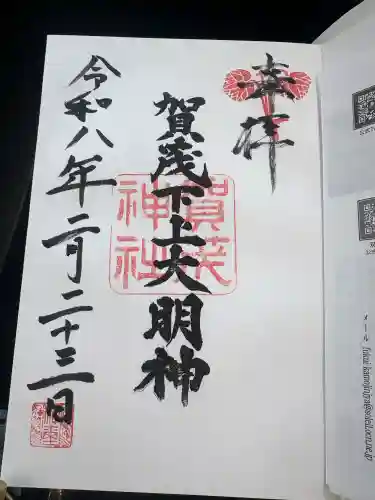 奉拝
賀茂下上大明神
賀茂神社
令和八年二月二十三日
メール